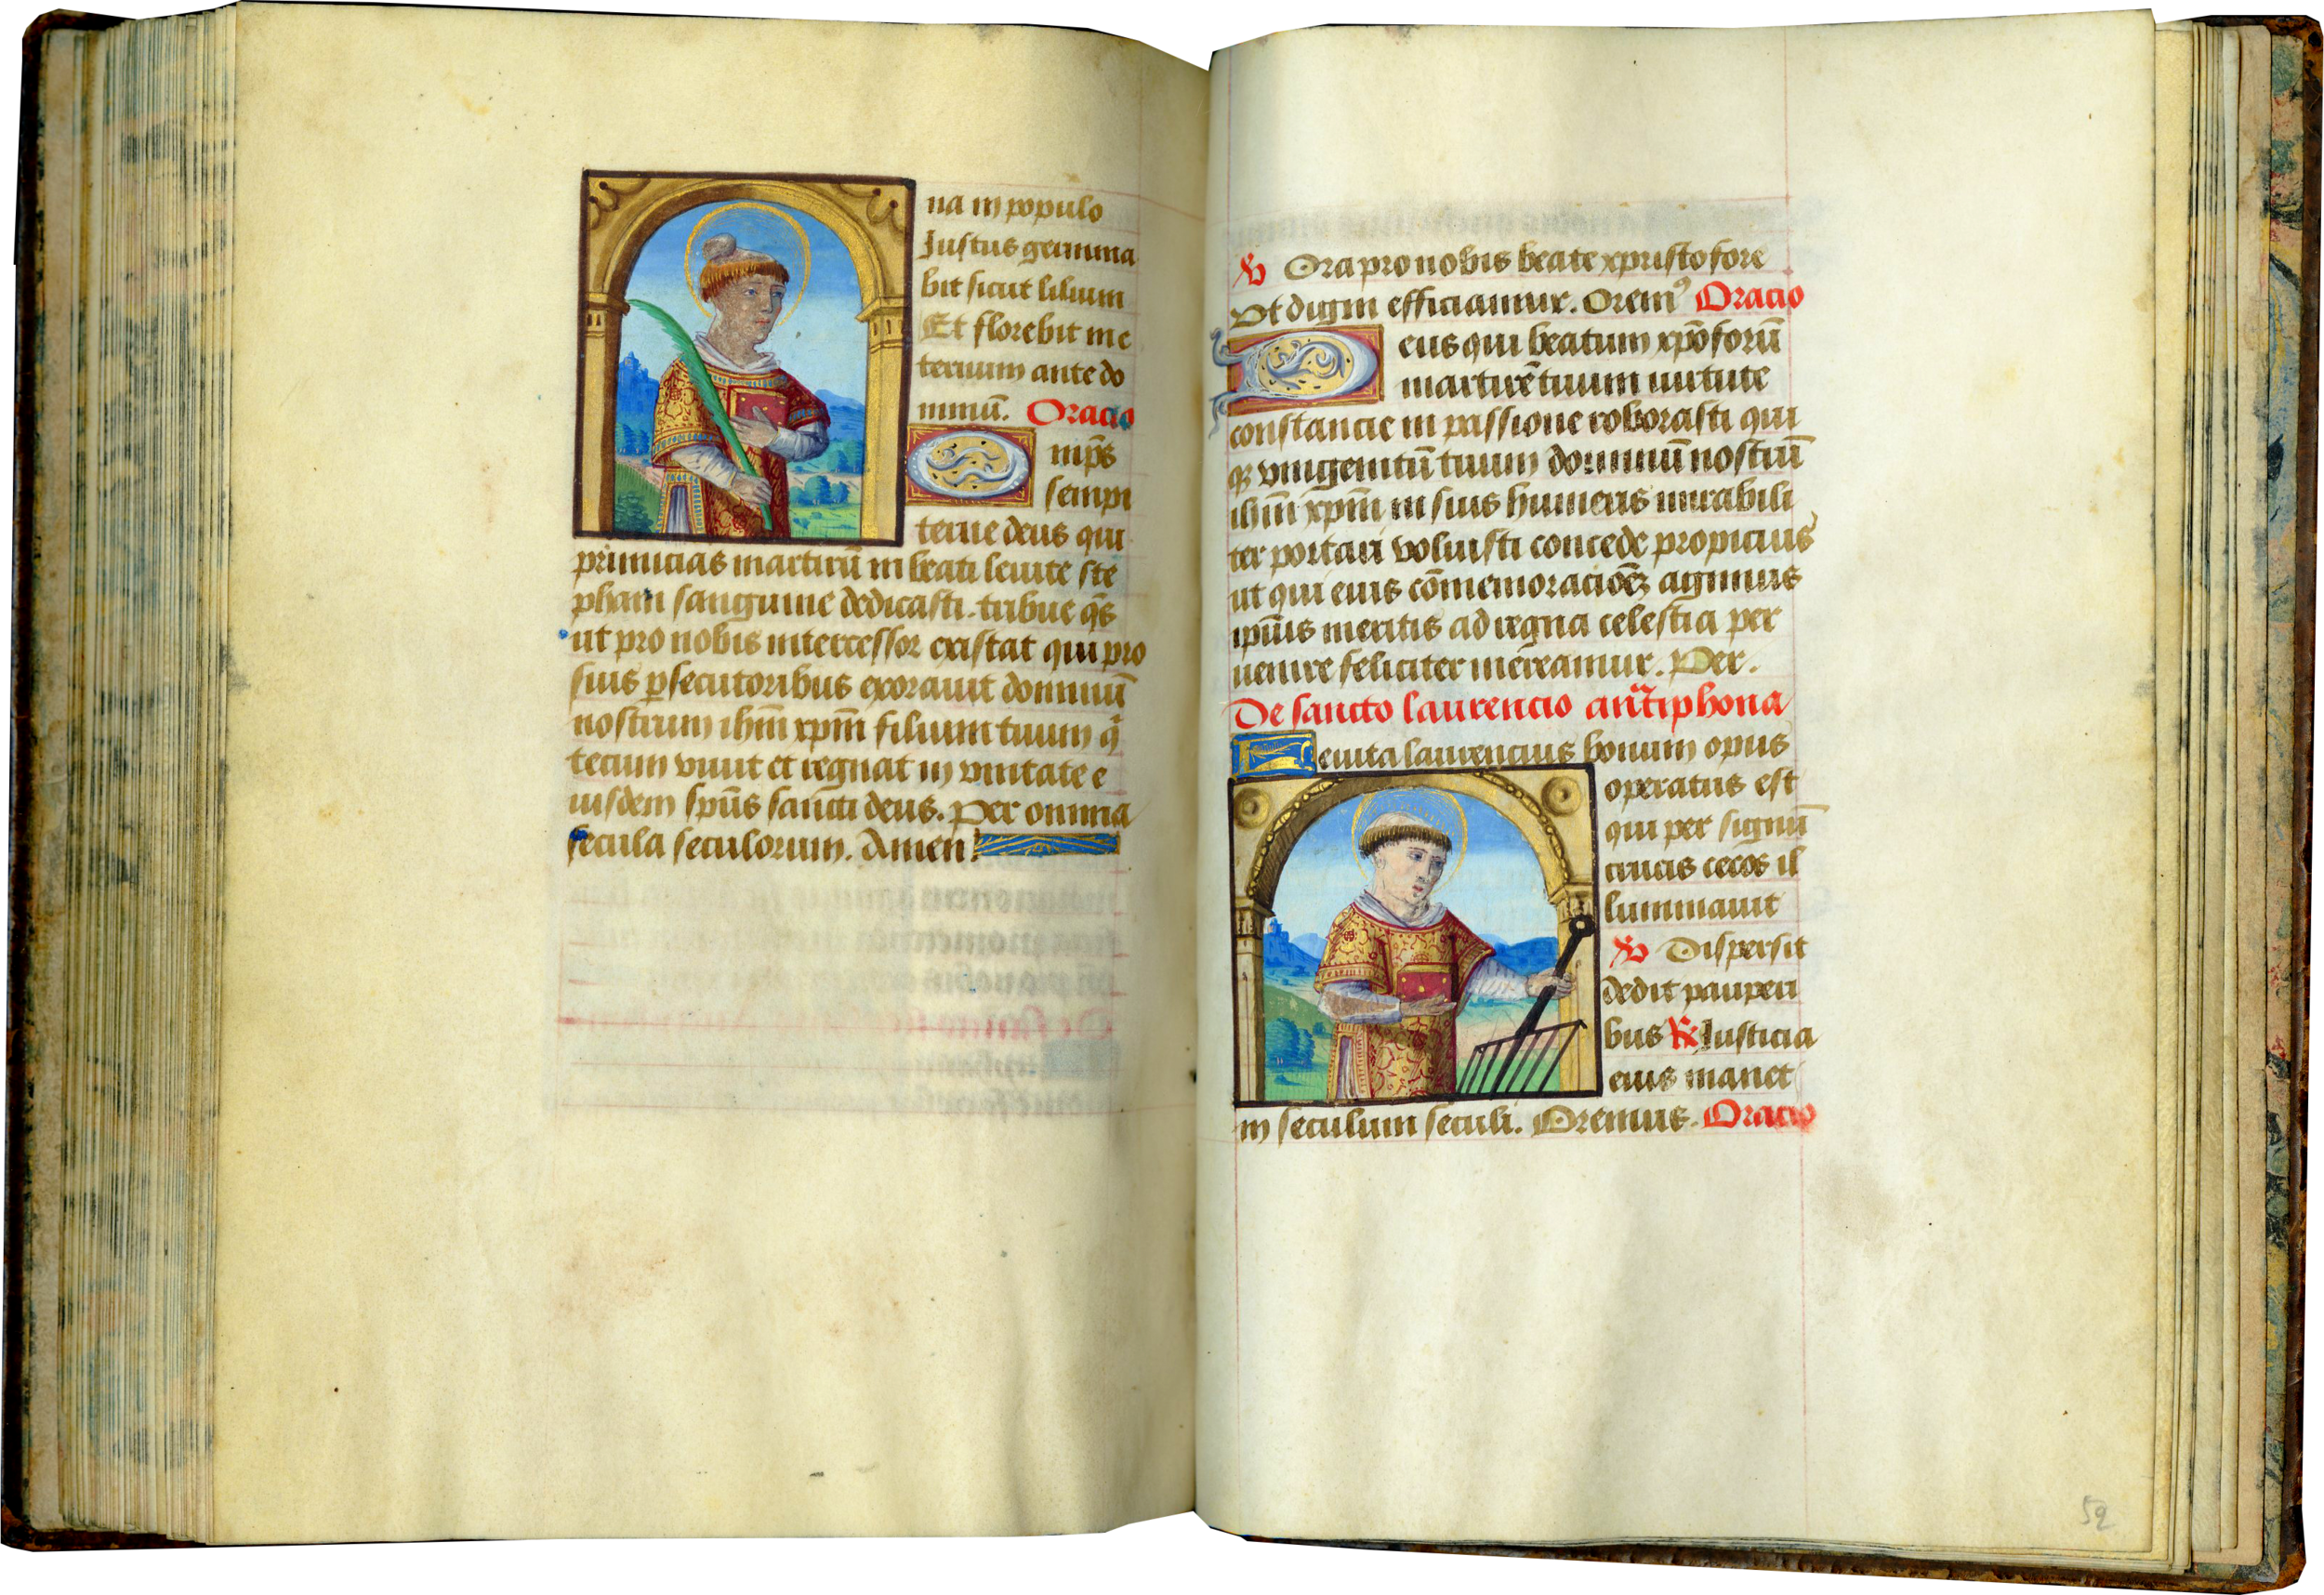 na in populo
Justus germina
bit sicut lilium
Et florebit in e
ternum ante do
minū. Oracio
Omp̄s
sempi
terne deus qui
primicias martirū in beati levite ste
phani sanguine dedicasti. tribue q̄s
ut pro nobis intercessor existat qui pro
suis ꝑsecutoribus exoravit dominū
nostrum ihm̄ xpm̄ filium tuum q̄
tecum vivit et regnat in unitate e
iusdem sp̄us sancti deus. Per omnia
secula seculorum. Amen.
℣ Ora pro nobis beate xpristofore
Ut digni efficiamur. Oremꝰ Oracio
Deus qui beatum xp̄oforū
martirē tuum virtute
constancie in passione roborasti qui
qꝫ unigenitū tuum dominū nostrū
ihm̄ xpm̄ in suis humeris mirabili
ter portari voluisti concede propicius
ut qui eius cōmemoracioēꝫ agimus
ipius meritis ad regna celestia per
venire feliciter mereamur. Per.
De sancto laurencio antiphona
Levita laurencius bonum opus
operatus est
qui per signū
crucis cecos il
luminavit
℣ Dispersit
dedit pauperi
bus ℟ Justicia
eius manet
in seculum seculi. Oremus. Oracio
52